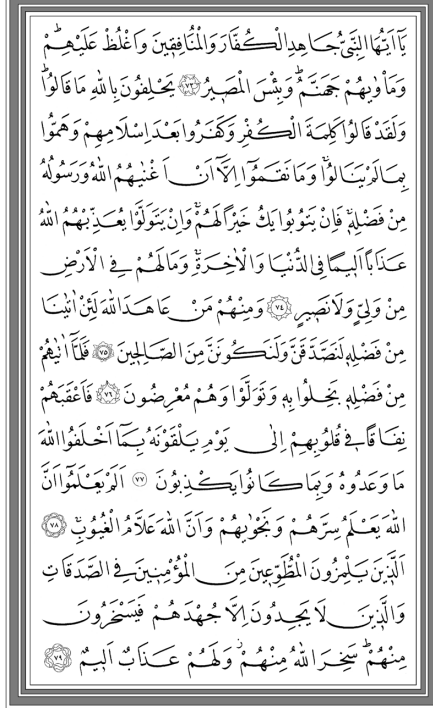 يَٓا اَيُّهَا النَّبِيُّ جَاهِدِ الْكُفَّارَ وَالْمُنَافِقٖينَ وَاغْلُظْ عَلَيْهِمْؕ
وَمَأْوٰيهُمْ جَهَنَّمُؕ وَبِئْسَ الْمَصٖيرُ ﴿٧٣﴾ يَحْلِفُونَ بِاللّٰهِ مَا قَالُواؕ
وَلَقَدْ قَالُوا كَلِمَةَ الْكُفْرِ وَكَفَرُوا بَعْدَ اِسْلَامِهِمْ وَهَمُّوا
بِمَا لَمْ يَنَالُواۚ وَمَا نَقَمُٓوا اِلَّٓا اَنْ اَغْنٰيهُمُ اللّٰهُ وَرَسُولُهُ
مِنْ فَضْلِهٖۚ فَاِنْ يَتُوبُوا يَكُ خَيْرًا لَهُمْۚ وَاِنْ يَتَوَلَّوْا يُعَذِّبْهُمُ اللّٰهُ
عَذَابًا اَلٖيمًا فِي الدُّنْيَا وَالْاٰخِرَةِۚ وَمَا لَهُمْ فِي الْاَرْضِ
مِنْ وَلِيٍّ وَلَا نَصٖيرٍ ﴿٧٤﴾ وَمِنْهُمْ مَنْ عَاهَدَ اللّٰهَ لَئِنْ اٰتٰينَا
مِنْ فَضْلِهٖ لَنَصَّدَّقَنَّ وَلَنَكُونَنَّ مِنَ الصَّالِحٖينَ ﴿٧٥﴾ فَلَمَّٓا اٰتٰيهُمْ
مِنْ فَضْلِهٖ بَخِلُوا بِهٖ وَتَوَلَّوْا وَهُمْ مُعْرِضُونَ ﴿٧٦﴾ فَاَعْقَبَهُمْ
نِفَاقًا فٖي قُلُوبِهِمْ اِلٰى يَوْمِ يَلْقَوْنَهُ بِمَٓا اَخْلَفُوا اللّٰهَ
مَا وَعَدُوهُ وَبِمَا كَانُوا يَكْذِبُونَ ﴿٧٧﴾ اَلَمْ يَعْلَمُٓوا اَنَّ
اللّٰهَ يَعْلَمُ سِرَّهُمْ وَنَجْوٰيهُمْ وَاَنَّ اللّٰهَ عَلَّامُ الْغُيُوبِۚ ﴿٧٨﴾
اَلَّذٖينَ يَلْمِزُونَ الْمُطَّوِّعٖينَ مِنَ الْمُؤْمِنٖينَ فِي الصَّدَقَاتِ
وَالَّذٖينَ لَا يَجِدُونَ اِلَّا جُهْدَهُمْ فَيَسْخَرُونَ
مِنْهُمْؕ سَخِرَ اللّٰهُ مِنْهُمْؗ وَلَهُمْ عَذَابٌ اَلٖيمٌ ﴿٧٩﴾